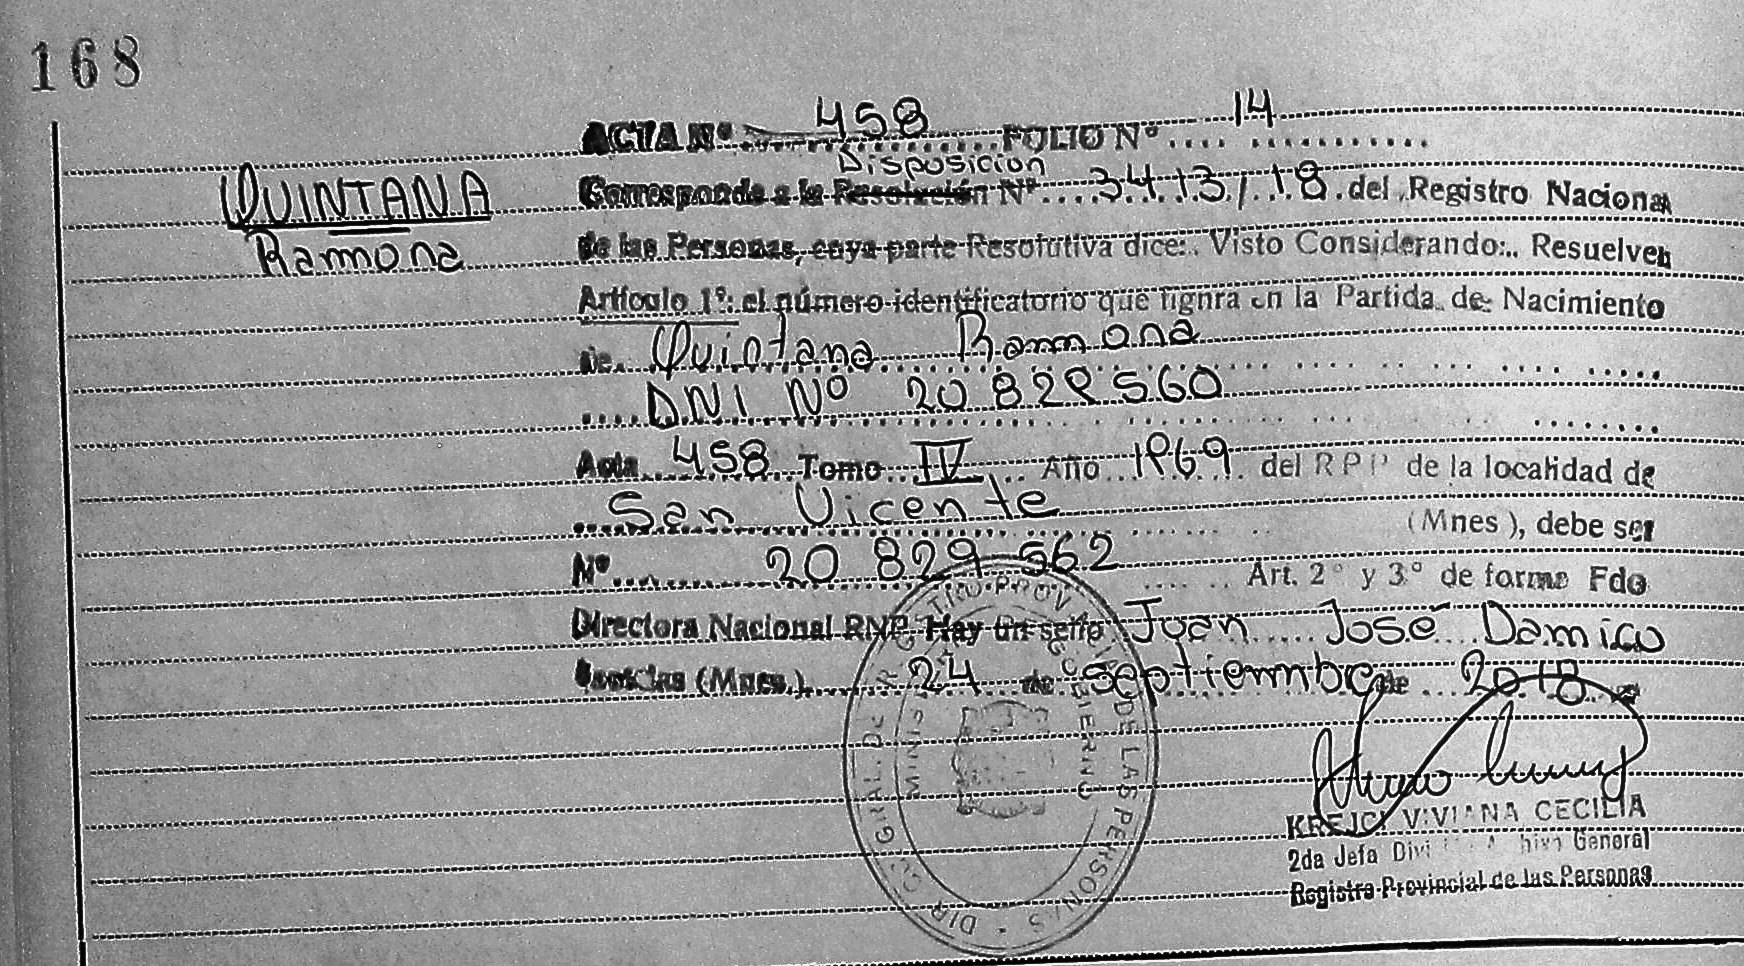 168
ACTA Nº 458 FOLIO Nº 14
Disposicion
QUINTANA
Ramona
Corresponde a la Resolución Nº 3413/18 del Registro Nacional
de las Personas, cuya parte Resolutiva dice: Visto Considerando: Resuelven
Artículo 1º: el número identificatorio que figura en la Partida de Nacimiento
de Quintana Ramona
DNI Nº 20 829 560
Acta 458 Tomo IV Año 1969 del RPP de la localidad de
San Vicente (Mnes), debe ser
Nº 20 829 562 Art. 2º y 3º de forma Fdo
Directora Nacional RNP. Hay un sello Juan José Damico
Posadas (Mnes.) 24 de septiembre de 2018
DIR. GRAL. DEL REGISTRO PROVINCIAL DE LAS PERSONAS
MINIS GOBIERNO
KREJCI VIVIANA CECILIA
2da Jefa División Archivo General
Registro Provincial de las Personas